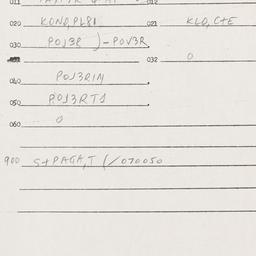 011 012
020 KONO,PL81 021 KLO, C+E
030 POJ3R )-POV3R
032 0
040 POJ3RIM
050 POJ3RTJ
060 0
900 S+PAGA,T (/070050